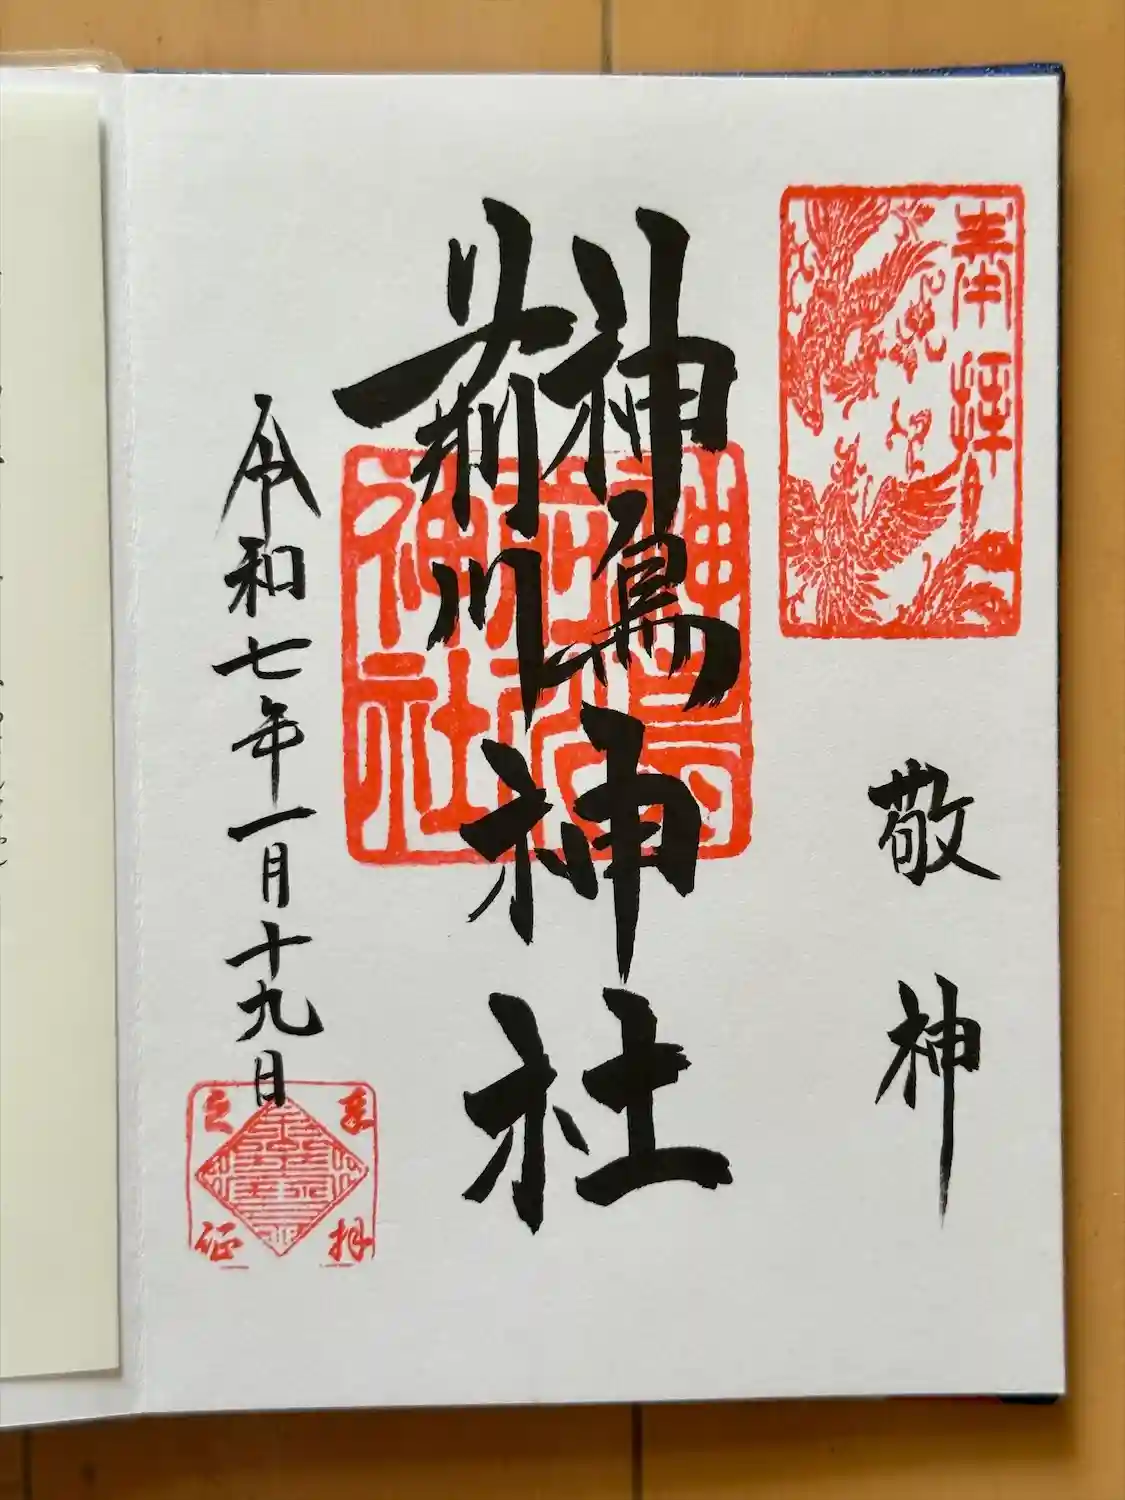 奉拝
敬神
神鳥前川神社
神鳥前川神社
令和七年一月十九日
来拝之証